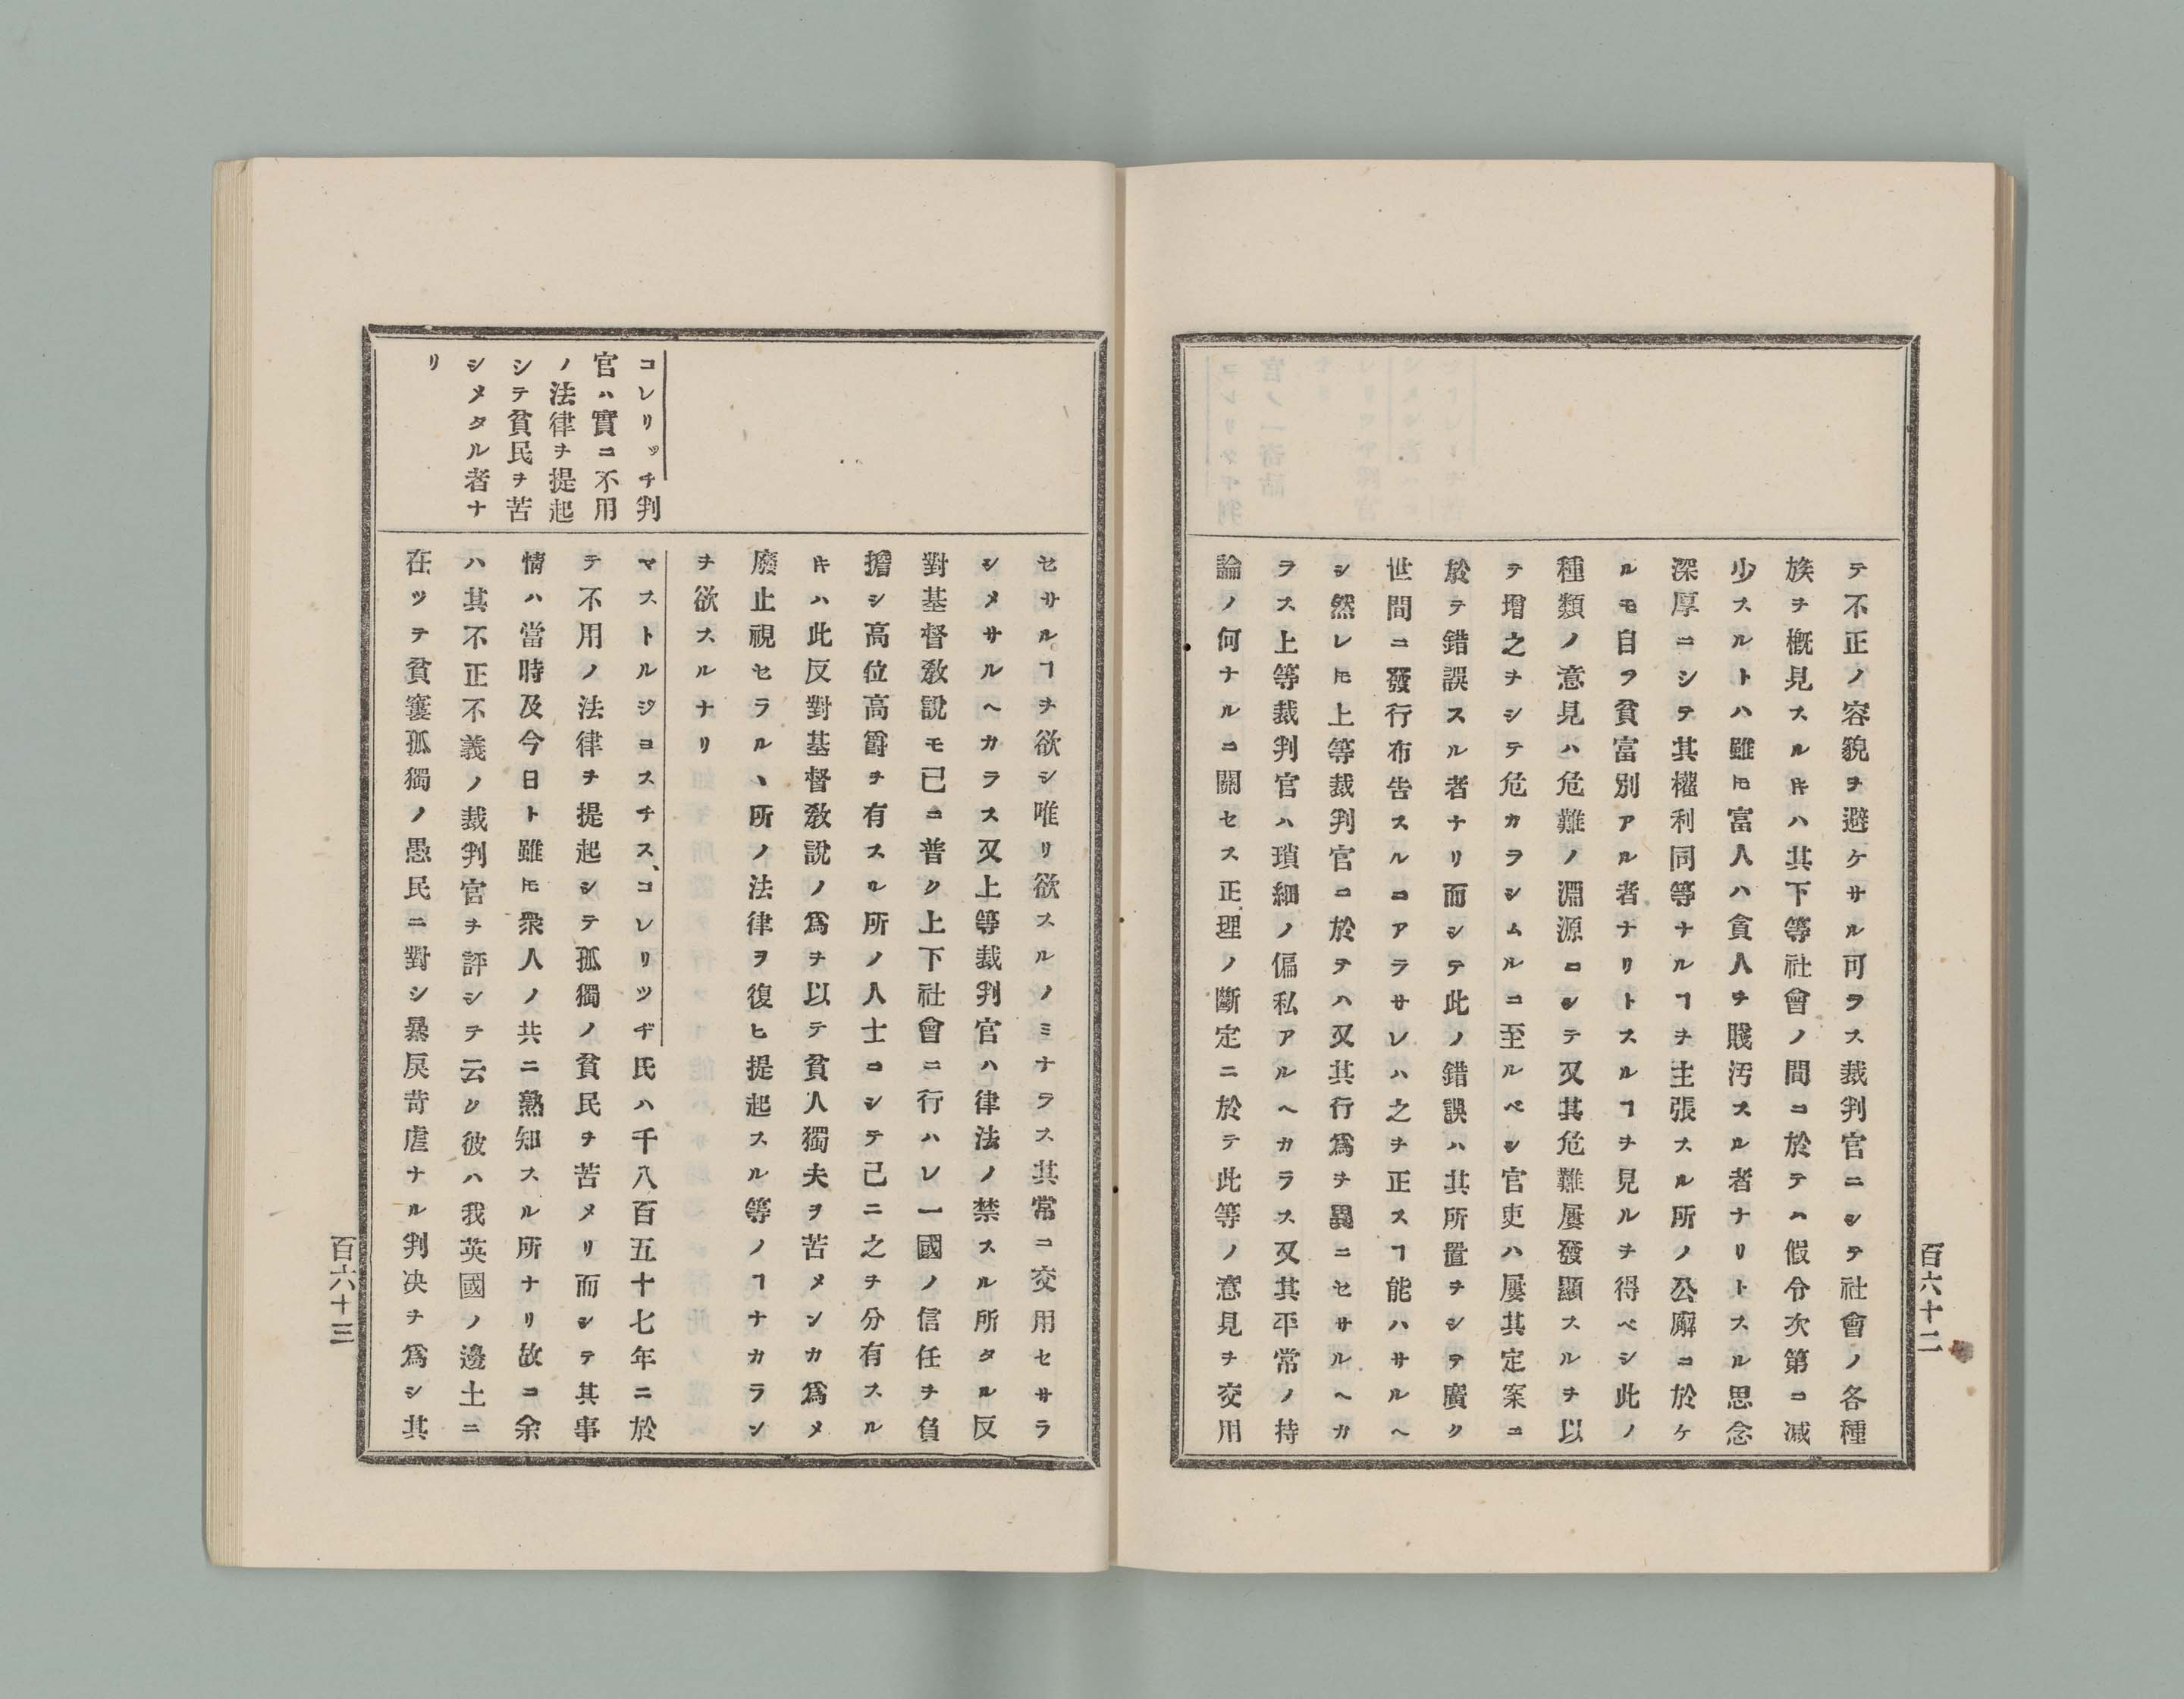 テ不正ノ容貌ヲ避ケサル可ラス裁判官ニシテ社會ノ各種
族ヲ概見スルㇰハ其下等社會ノ間ニ於テハ假令次第ニ減
少スルトハ雖𪜈富人ハ貪人ヲ賤汚スル者ナリトスル思念
深厚ニシテ其權利同等ナルヿヲ主張スル所ノ公廨ニ於ケ
ルモ自ラ貧富別アル者ナリトスルヿヲ見ルヲ得ベシ此ノ
種類ノ意見ハ危難ノ淵源ニシテ又其危難屢發顯スルヲ以
テ增之ヲシテ危カラシムルニ至ルベシ官吏ハ屢其定案ニ
於テ錯誤スル者ナリ而シテ此ノ錯誤ハ其所置ヲシテ廣ク
世間ニ發行布告スルニアラサレハ之ヲ正スヿ能ハサルヘ
シ然レ𪜈上等裁判官ニ於テハ又其行爲ヲ異ニセサルヘカ
ラス上等裁判官ハ瑣細ノ偏私アルヘカラス又其平常ノ持
論ノ何ナルニ關セス正理ノ斷定ニ於テ此等ノ意見ヲ交用
百六十二
コレリッチ判
官ハ實ニ不用
ノ法律ヲ提起
シテ貧民ヲ苦
シメタル者ナ
リ
セサルヿヲ欲シ唯リ欲スルノミナラス其常ニ交用セサラ
シメサルヘカラス又上等裁判官ハ律法ノ禁スル所タル反
對基督敎說モ已ニ普ク上下社會ニ行ハレ一國ノ信任ヲ負
擔シ高位高爵ヲ有スル所ノ人士ニシテ已ニ之ヲ分有スル
𪜈ハ此反對基督敎說ノ爲ヲ以テ貧人獨夫ヲ苦メンカ爲メ
廢止視セラルヽ所ノ法律ヲ復ヒ提起スル等ノヿナカラン
ヲ欲スルナリ
マストルジヨスチス、コレリツヂ氏ハ千八百五十七年ニ於
テ不用ノ法律ヲ提起シテ孤獨ノ貧民ヲ苦メリ而シテ其事
情ハ當時及今日ト雖𪜈衆人ノ共ニ熟知スル所ナリ故ニ余
ハ其不正不義ノ裁判官ヲ評シテ云ク彼ハ我英國ノ邊土ニ
在ツテ貧窶孤獨ノ愚民ニ對シ暴戾苛虐ナル判決ヲ爲シ其
百六十三